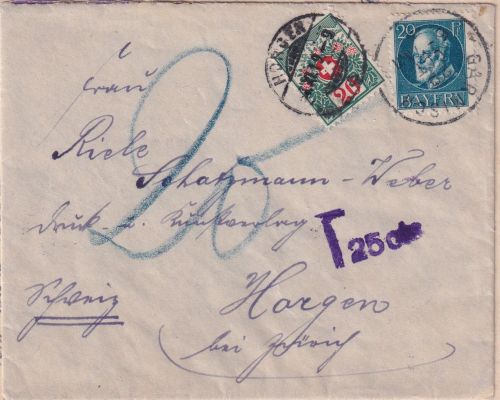 HORGEN
20
20 Pf.
BAYERN
Frau
Riele
Schatzmann-Weber
Druck- u. Kunstverlag
25
T 25 cts
Schweiz
Horgen
bei Zürich